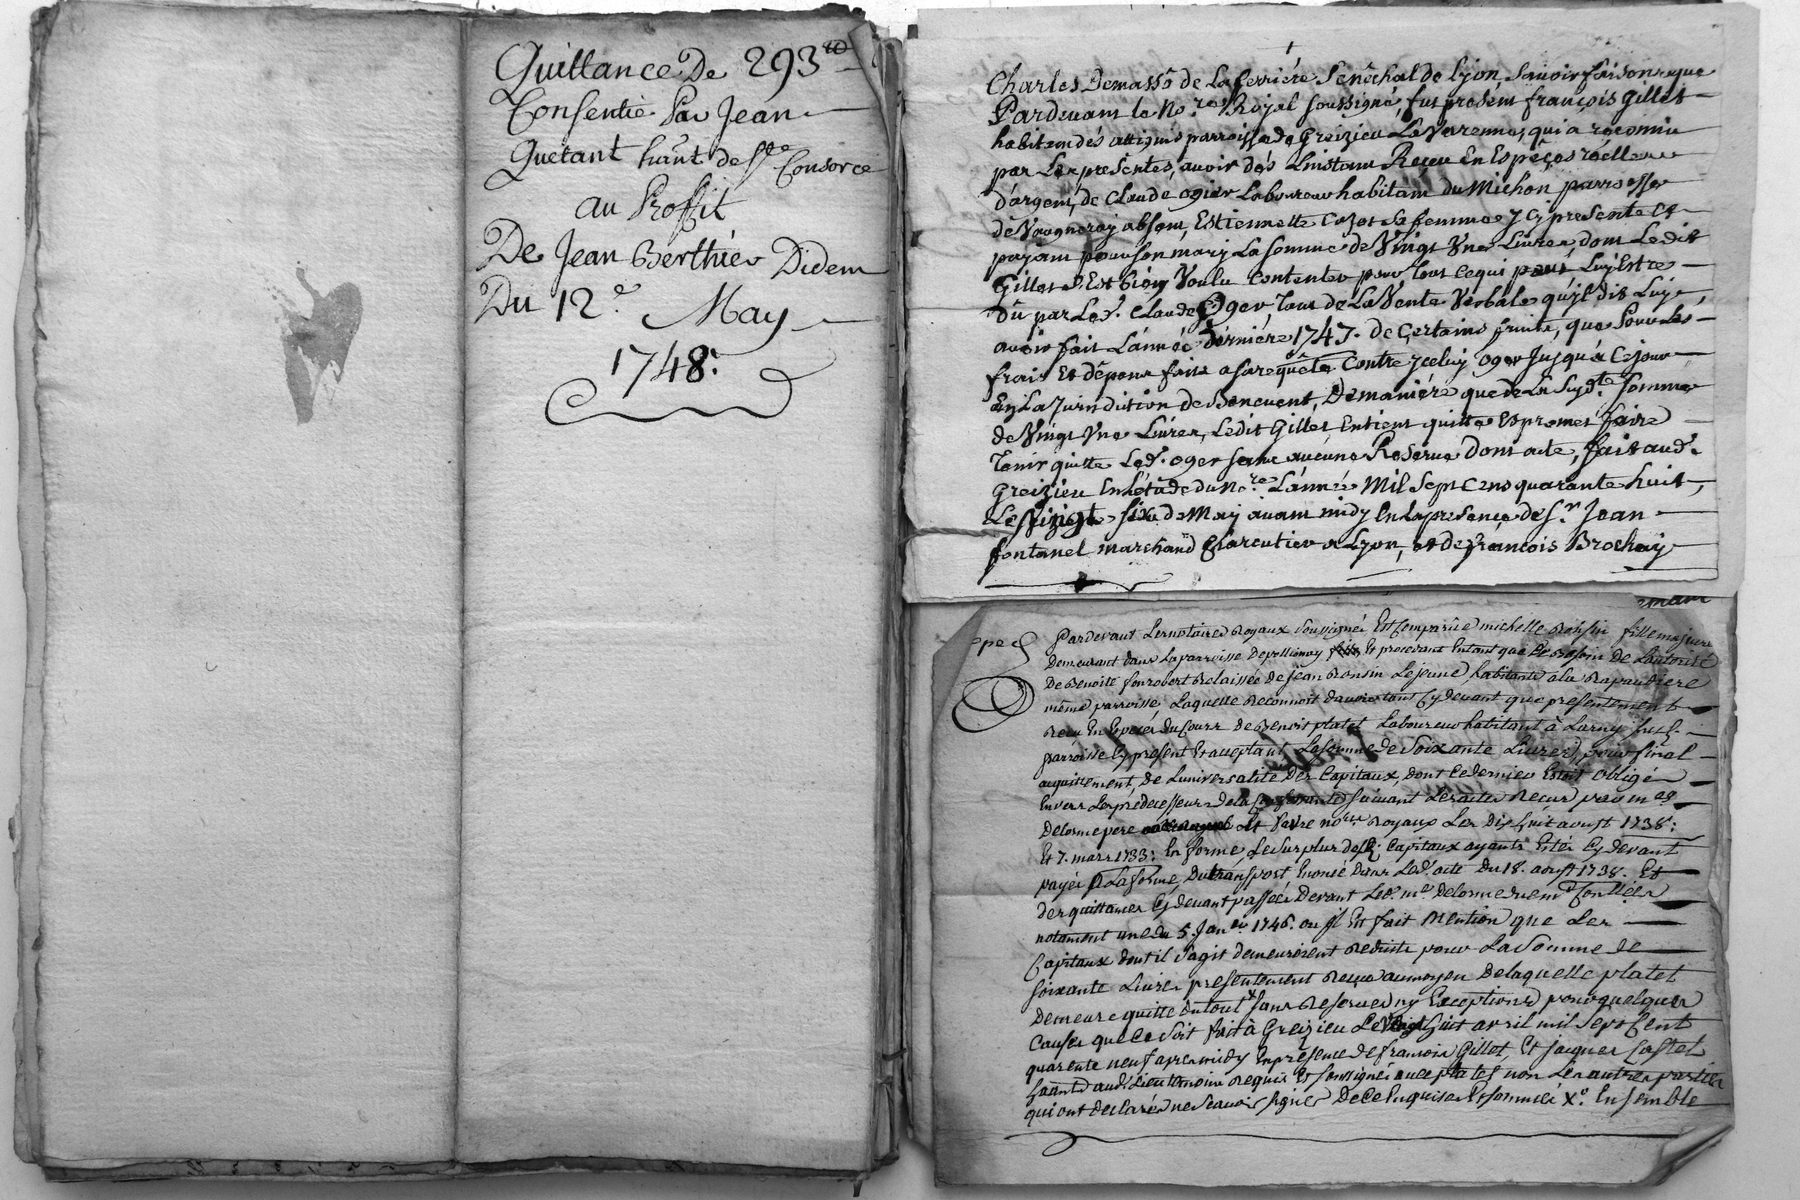 Quittance De 293
Consentie Par Jean
Quetant hant de Ste Consorce
au Proffit
De Jean Berthier Didem
Du 12e May
1748.
Charles Demasso de Laferriére Senêchal de Lyon Savoir faisons que
Pardevant le No.re Royal soussigné, fut présent françois Gillet
habitant dés attignis parroisse de Greizieu La Varenne, qui a reconnu
par Les presentes, avoir dés Linstant Reçeu En Espêces réelles
d'argent, de Claude ogier Laboureur habitant du Michon parroisse
de Vaugneray absent, Estiennette Cazot sa femme y Cy presente et
payant pour son mary La somme de Vingt Une Livres dont Ledit
Gillet s'Est bien Voulu Contenter pour tout ce qui peut Luy Estre
dû par Led. Claude Oger, tant de La Vente Verbale qu'il dit Luy
avoir fait L'année dérniére 1747. de Certains fruits, que Pour Les
frais Et dépens faits a sa requête Contre yceluy oger Jusqu'à Ce jour
En La Jurisdiction de Benevent, Demaniére que de La susd.te somme
de Vingt Une Livres, Ledit Gillet Entient quitte Et promet faire
tenir quitte Led. oger sans aucune Reserve Dont acte, fait aud.
Greizieu En L'étude du No.re L'année Mil Sept Cens quarante huit,
Le Vingt six de May avant midy En La presence de S.r Jean
fontanel marchand Charcutier a Lyon, et de françois Brochay
Pardevant Les notaires Royaux soussignés Est Comparüe michelle Ronsin fille majeure
Demeurant dans La parroisse De pollionay Et procedant Entant que De Besoin de Lautorité
De Benoite fonrobert Relaissée de jean Ronsin Le jeune, habitante a la Rapaudiere
même parroisse, Laquelle Reconnoit avoir tant Cy devant que presentement
Receu En Especes du Cours de Benoit platet Laboureur habitant à Larny sus.
parroisse Cy present Et acceptant La somme de Soixante Livres, pour final
acquittement, de L'universalité Des Capitaux, dont Ce dernier Estoit obligé
Envers Les predecesseurs de la suivant Les actes Receus par mes
Delorme pere Et favre no.res Royaux Les Dix huit aoust 1738.
Et 7. mars 1733. En forme, Le surplus desd. Capitaux ayants Estés Cy devant
payés La forme, Du transport Enoncé Dans Led. acte du 18. aoust 1738. Et
des quittances Cy devant passées Devant Led. me. Delorme
notament une du 5. Janv.er 1746. ou il Est fait Mention que Les
Capitaux dont il s'agit demeurerent Reduits pour La Somme de
soixante Livres presentement Reçue au moyen De laquelle platet
Demeure quitte du tout sans Reserve ny Exceptions pour quelques
Causes que Ce Soit fait à Greizieu Le Vingt huit avril mil Sept Cent
quarente neuf apres midy En presence de francois Gillet, Et jacques Castel
habitants aud. Lieu temoins requis Et soussignés avec platet non Les autres parties
qui ont declarés ne sçavoir signer De Ce Enquises Et sommées Ensemble